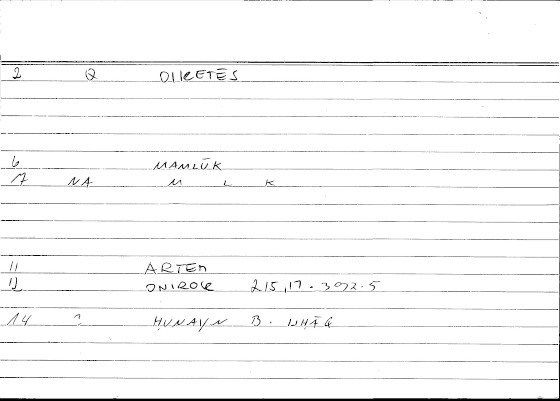 2 Q OIKETĒS
6 MAMLŪK
17 NA M L K
11 ARTEM
12 ONIROCR 215,17 - 392.5
14 ? ḤUNAYN B. ISHĀQ